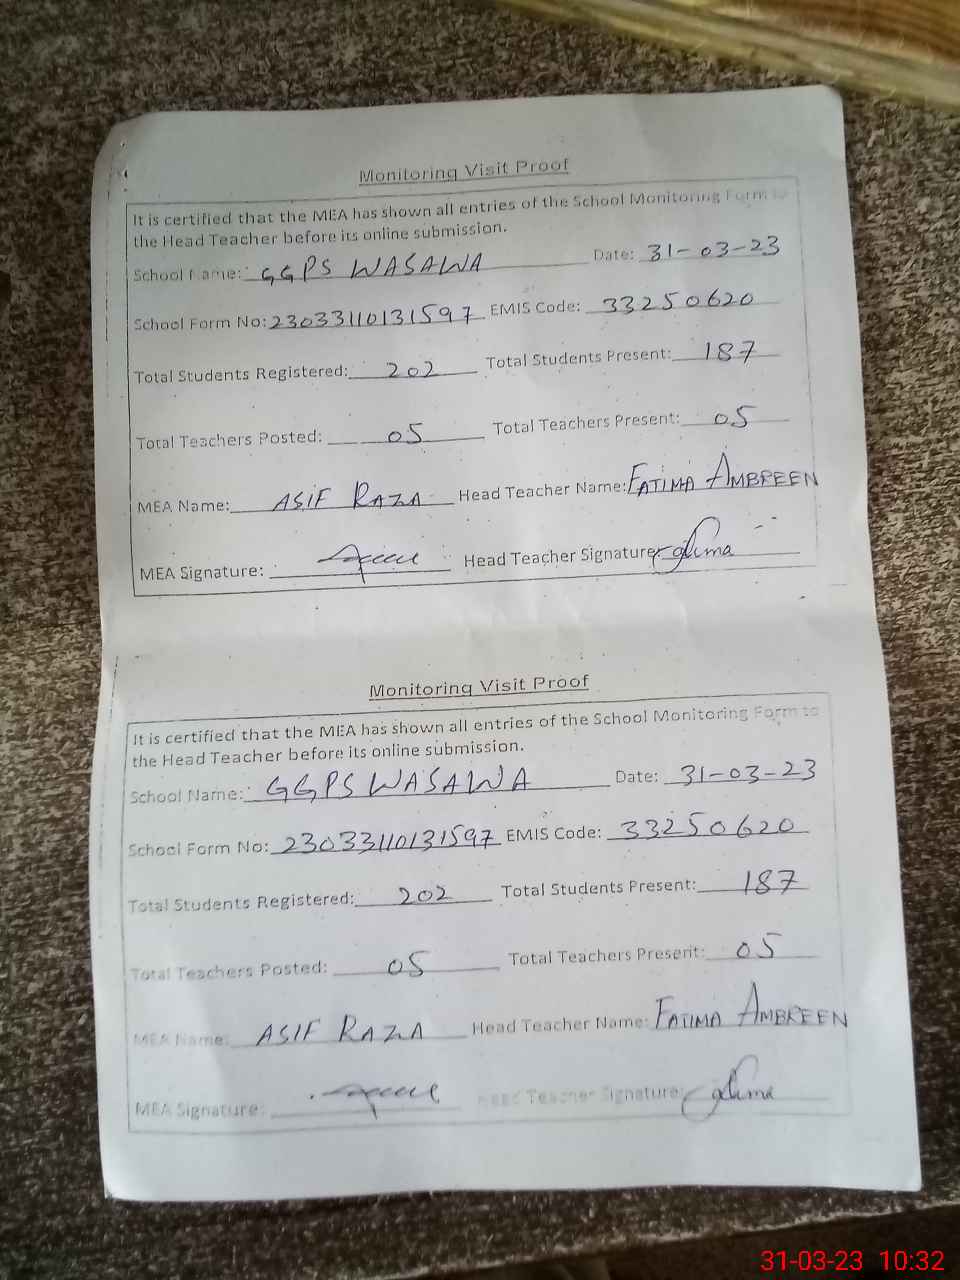 Monitoring Visit Proof
It is certified that the MEA has shown all entries of the School Monitoring Form to
the Head Teacher before its online submission.
School Name: GGPS WASAWA Date: 31-03-23
School Form No: 23033110131597 EMIS Code: 33250620
Total Students Registered: 202 Total Students Present: 187
Total Teachers Posted: 05 Total Teachers Present: 05
MEA Name: ASIF RAZA Head Teacher Name: FATIMA AMBREEN
MEA Signature: Head Teacher Signature:
Monitoring Visit Proof
It is certified that the MEA has shown all entries of the School Monitoring Form to
the Head Teacher before its online submission.
School Name: GGPS WASAWA Date: 31-03-23
School Form No: 23033110131597 EMIS Code: 33250620
Total Students Registered: 202 Total Students Present: 187
Total Teachers Posted: 05 Total Teachers Present: 05
MEA Name: ASIF RAZA Head Teacher Name: FATIMA AMBREEN
MEA Signature: Head Teacher Signature:
31-03-23 10:32